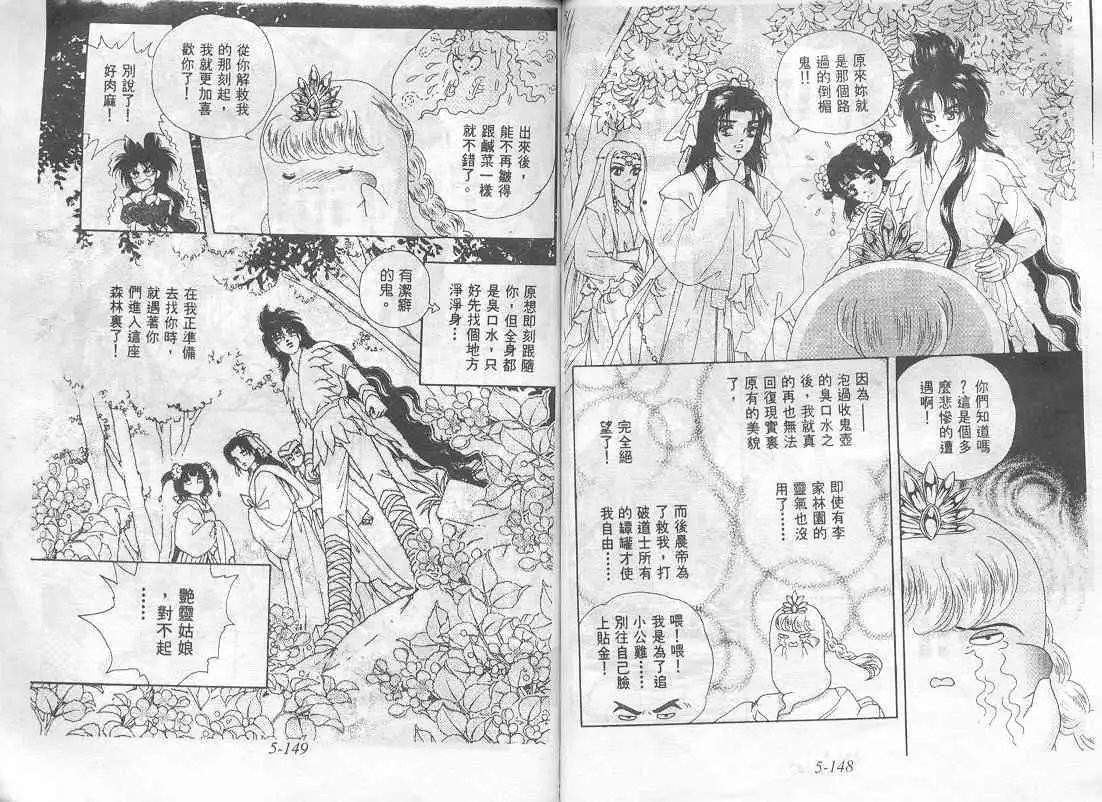 原來妳就
是那個路
過的倒楣
鬼!!
你們知道嗎
?這是個多
麼悲慘的遭
遇啊!
因為——
泡過收鬼壺
的臭口水之
後,我就真
的再也無法
回復現實裏
原有的美貌
了,
即使有李
家林園的
靈氣也沒
用了……
完全絕
望了!
而後晨帝為
了救我,打
破道士所有
的罈罐才使
我自由……
喂!喂!
我是為了追
小公雞……
別往自己臉
上貼金!
5-148
出來後,
能不再皺得
跟鹹菜一樣
就不錯了。
從你解救我
的那刻起,
我就更加喜
歡你了!
別說了!
好肉麻!
原想即刻跟隨
你,但全身都
是臭口水,只
好先找個地方
淨淨身…
有潔癖
的鬼。
在我正準備
去找你時,
就遇著你
們進入這座
森林裏了!
艷靈姑娘
,對不起
……
5-149